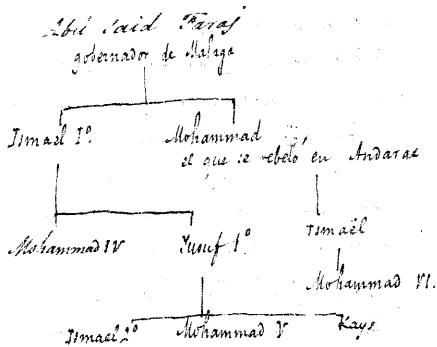 Abú Said Faraj
gobernador de Malaga
Ismael I°.
Mohammad
el que se rebeló en Andarax
Ismaël
Mohammad IV
Yusuf I°.
Mohammad VI.
Ismael 2°
Mohammad V
Kays